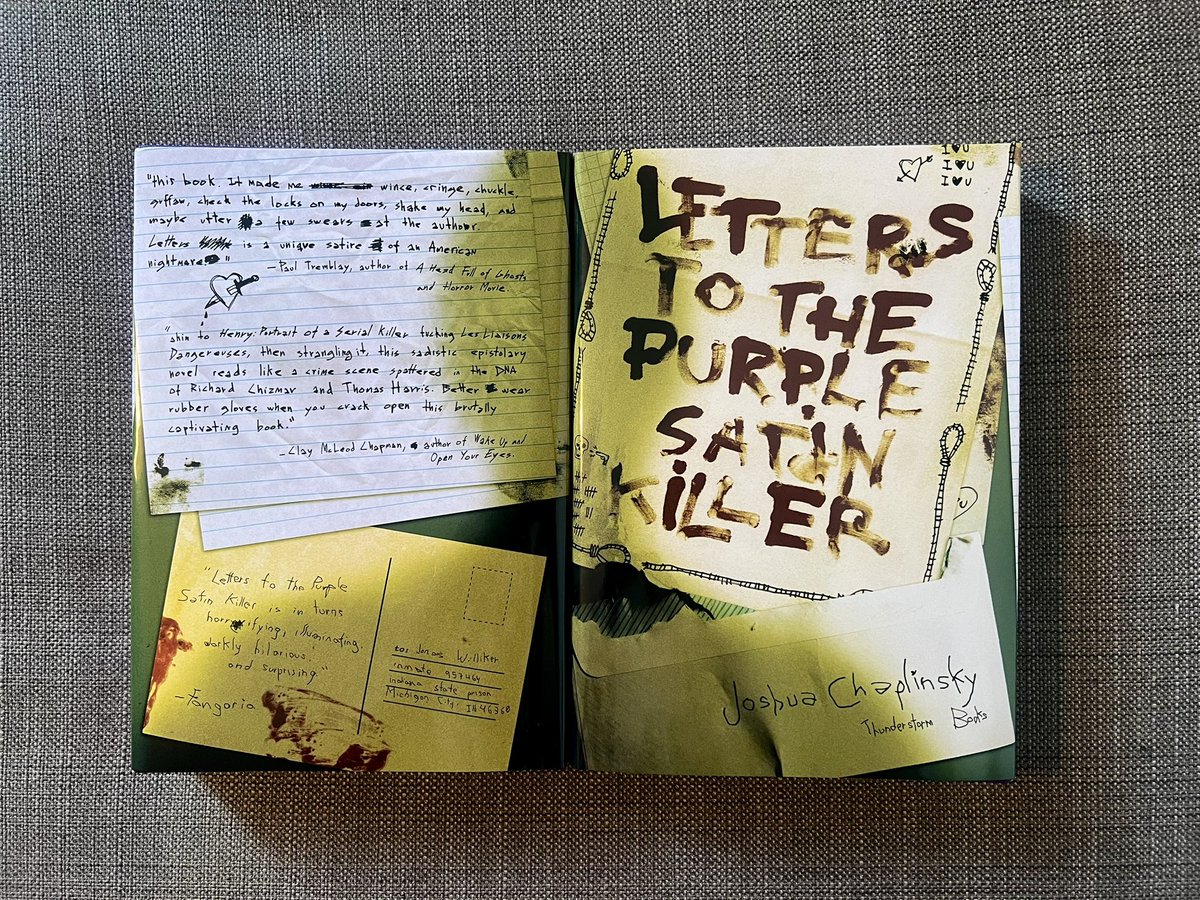 "this book. It made me wince, cringe, chuckle,
guffaw, check the locks on my doors, shake my head, and
maybe utter a few swears at the author.
Letters is a unique satire of an American
nightmare."
—Paul Tremblay, author of A Head Full of Ghosts
and Horror Movie.
"akin to Henry: Portrait of a Serial Killer fucking Les Liaisons
Dangereuses, then strangling it, this sadistic epistolary
novel reads like a crime scene spattered in the DNA
of Richard Chizmar and Thomas Harris. Better wear
rubber gloves when you crack open this brutally
captivating book."
—Clay McLeod Chapman, author of Wake Up and
Open Your Eyes.
"Letters to the Purple
Satin Killer is in turns
horrifying, illuminating,
darkly hilarious,
and surprising."
—Fangoria
Jonas Williker
inmate 957464
indiana state prison
Michigan City, IN 46360
I ♥ U
I ♥ U
I ♥ U
LETTERS
TO THE
PURPLE
SATIN
KILLER
Joshua Chaplinsky
Thunderstorm Books